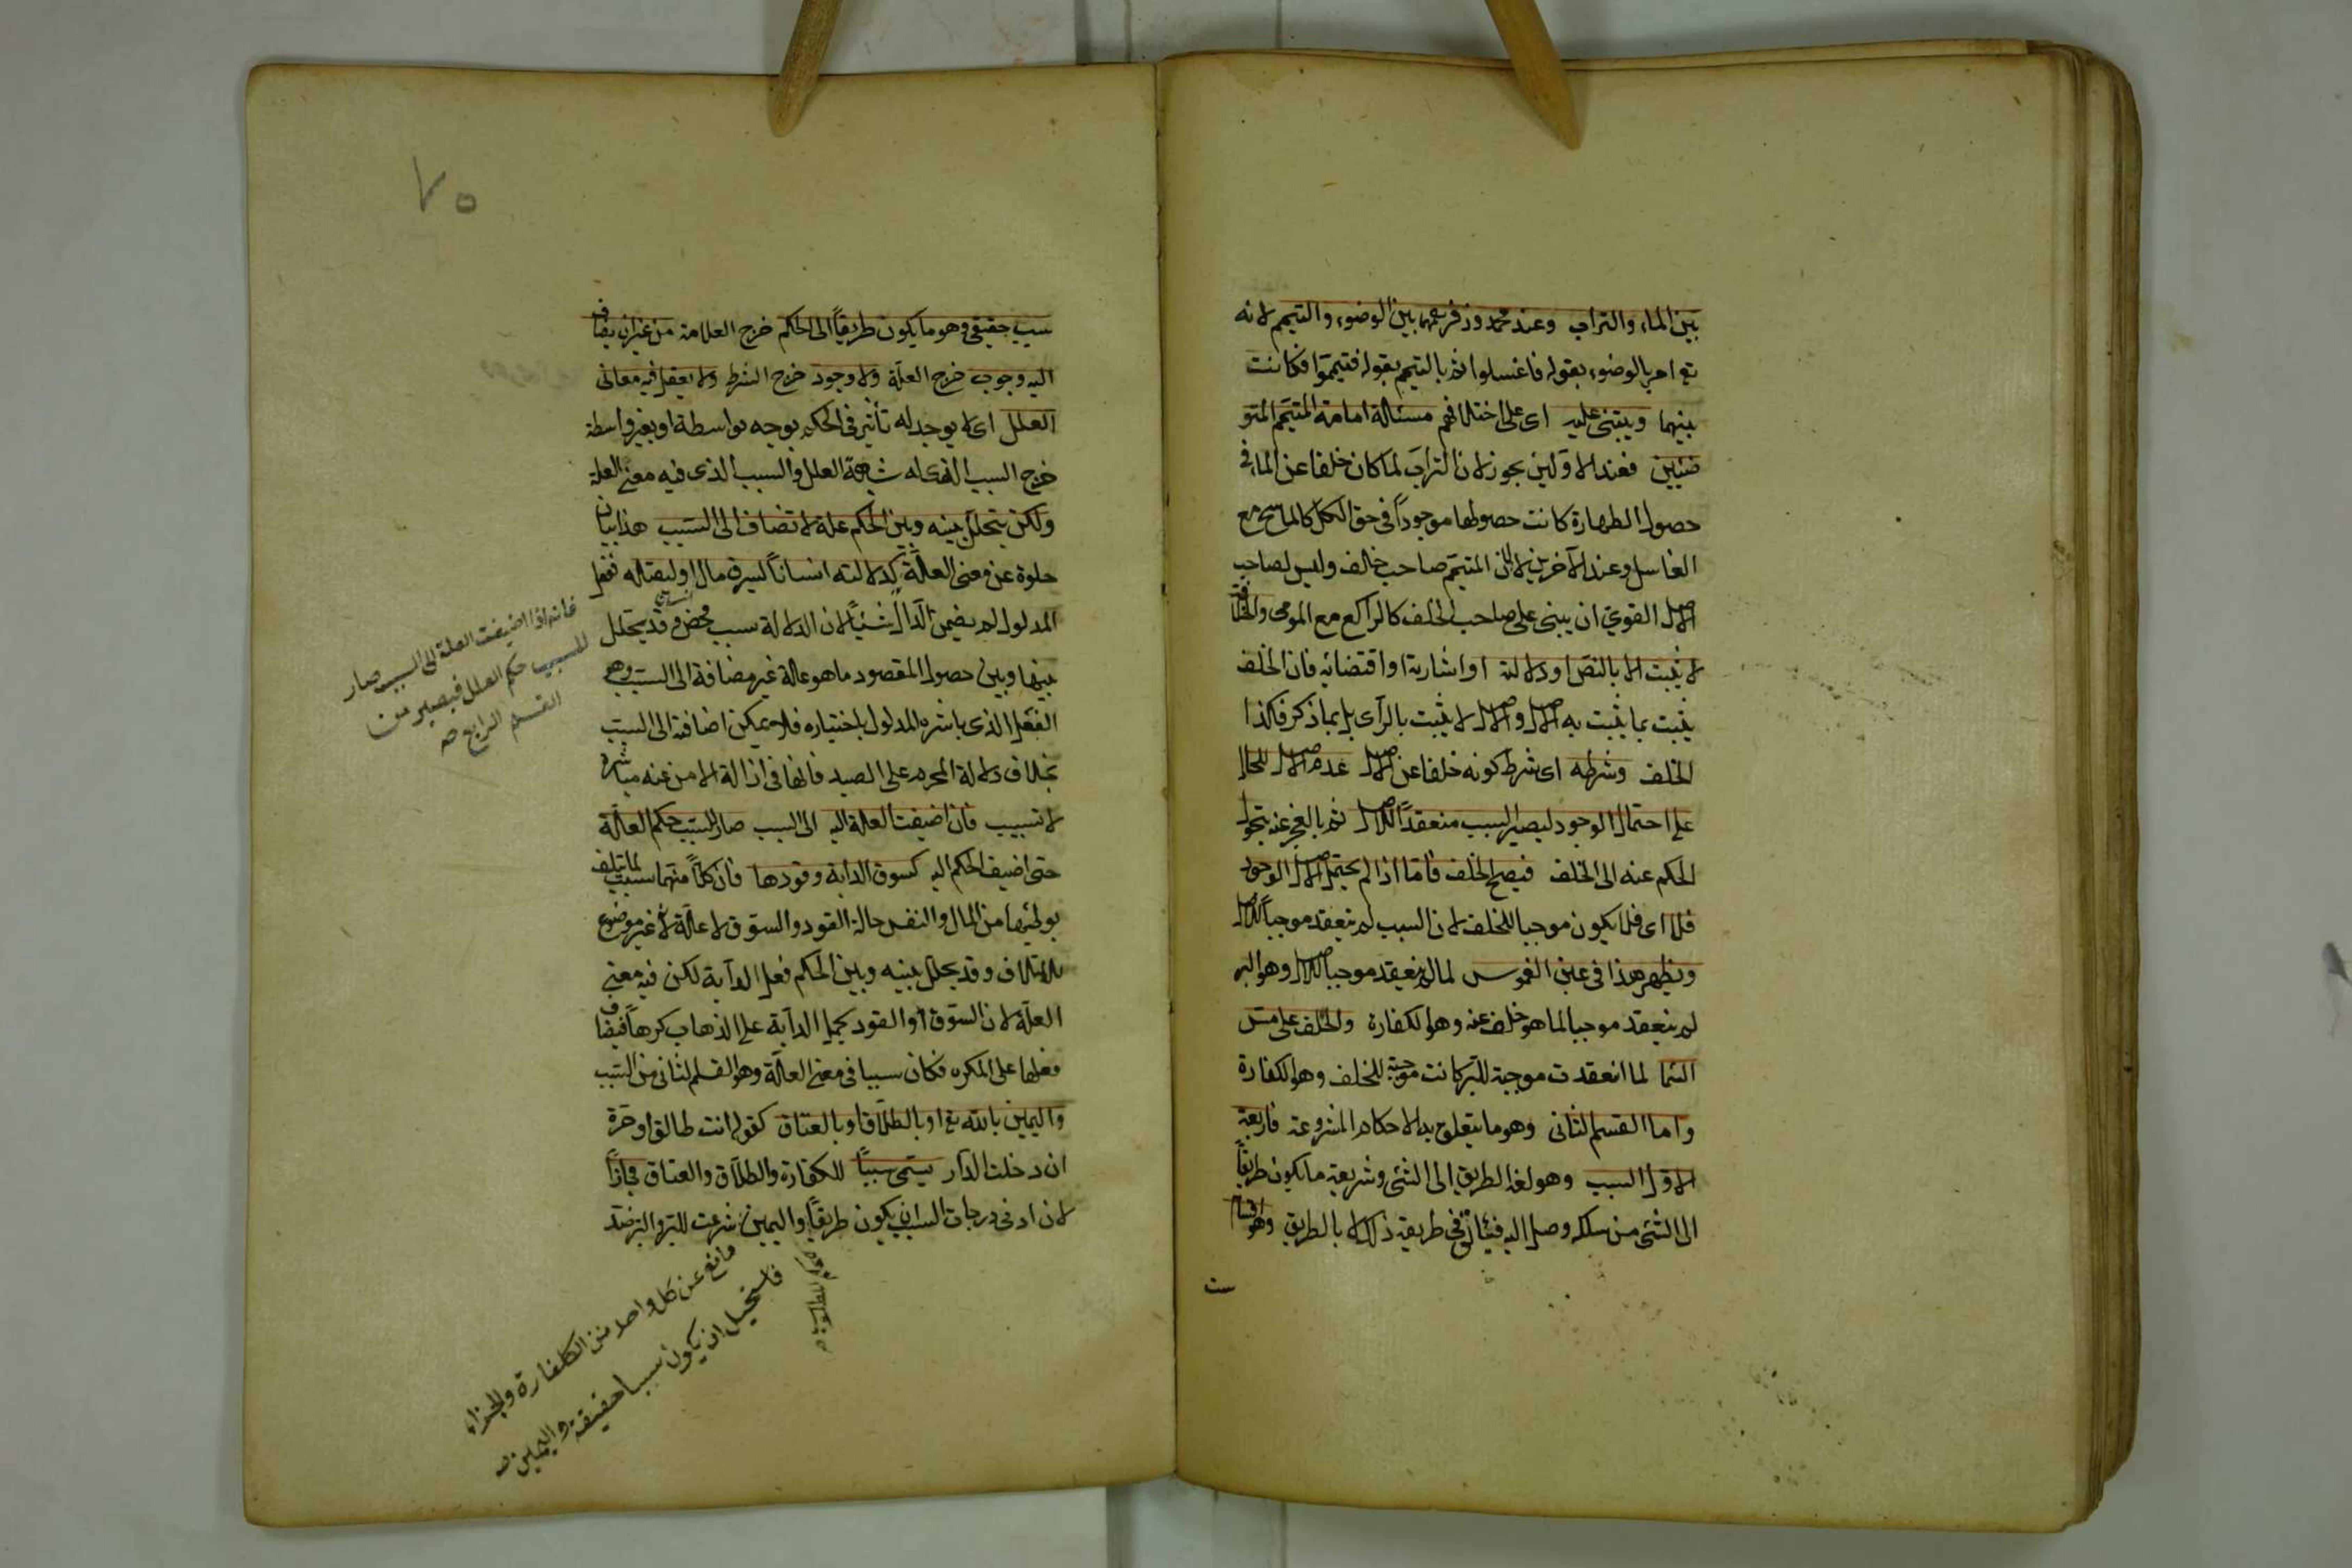 بين الماء والتراب وعند محمد وزفر رحمهما بين الوضوء والتيمم لانه
تع امر بالوضوء بقوله فاغسلوا ثم بالتيمم بقوله فتيمموا فكانت
بينهما ويبتنى عليه اى على اختلافهم مسئالة امامة المتيمم المتو
ضئين فعند الاولين يجوز لان التراب لما كان خلفا عن الماء فى
حصول الطهارة كانت حصولها موجودا فى حق الكل كالماسح مع
الغاسل وعند الآخرين لا لان المتيمم صاحب خالف وليس لصاحب
الاصل القوي ان يبنى على صاحب الخلف كالراكع مع المومى والخلافة
لا يثبت الا بالنص او دلالته او اشارته او اقتضائه فان الخلف
يثبت بما يثبت به الاصل والاصل لا يثبت بالرأى بل بما ذكر فكذا
الخلف وشرطه اى شرط كونه خلفا عن الاصل عدم الاصل للحال
على احتمال الوجود ليصير السبب منعقدا للاصل ثم بالعجز عنه يتحول
الحكم عنه الى الخلف فيصح الخلف فاما اذا لم يحتمل الاصل الوجود
فلا اى فلا يكون موجبا للخلف لان السبب لم ينعقد موجبا للاصل
ويظهر هذا فى عين الغموس لما لم ينعقد موجبا للاصل وهو البر
لم ينعقد موجبا لما هو خلف عنه وهو الكفارة والخلف على مس
السما لما انعقدت موجبة للبر كانت موجبة للخلف وهو الكفارة
واما القسم الثانى وهو ما يتعلق به الاحكام المشروعة فاربعة
الاول السبب وهو لغة الطريق الى الشئ وشريعة ما يكون طريقا
الى الشئ من سلكه وصل اليه فينال فى طريقه ذلك لا بالطريق وهو اقسام
ست
٧٥
سبب حقيقى وهو ما يكون طريقا الى الحكم خرج العلامة من غير ان يضاف
اليه وجوب خرج العلة ولا وجود خرج الشرط ولا يعقل فيه معانى
العلل اى لا يوجد له تأثير فى الحكم بوجه بواسطة او بغير واسطة
خرج السبب الذى له شبهة العلل والسبب الذى فيه معنى العلة
ولكن يتخلل بينه وبين الحكم علة لا تضاف الى السبب هذا بيان
خلوه عن معنى العلة كدلالته انسانا ليسرق مال او ليقتله ففعل
المدلول لم يضمن الدال شيئا لان الدلالة سبب محض وقد يتخلل
بينها وبين حصول المقصود ما هو علة غير مضافة الى السبب وهو
الفعل الذى باشره المدلول باختياره فلا يمكن اضافته الى السبب
بخلاف دلالة المحرم على الصيد فانها فى ازالة الامن عنه مباشرة
لا تسبيب فان اضيفت العلة اليه الى السبب صار للسبب حكم العلة
حتى اضيف الحكم اليه كسوق الدابة وقودها فان كلا منهما سبب لما يتلف
بوطئها من المال والنفس حالة القود والسوق لا علة لانه غير موضوع
للاتلاف وقد يحلل بينه وبين الحكم فعل الدابة لكن فيه معنى
العلة لان السوق أو القود يحمل الدابة على الذهاب كرها فيضاف
فعلها على المكره فكان سببا فى معنى العلة وهو القسم الثانى من السبب
واليمين بالله تع او بالطلاق او بالعتاق كقوله انت طالق او حرة
ان دخلت الدار يسمى سببا للكفارة والطلاق والعتاق مجازا
لان ادنى درجات السبب ان يكون طريقا واليمين شرعت للبر والبر ضد
فانه اذا اضيفت العلة الى السبب صار
للسبب حكم العلل فيصير من
القسم الرابع صه
مانع عن كل واحد من الكفارة والجزاء
فاستحيل ان يكون سببا حقيقة واليمين صه